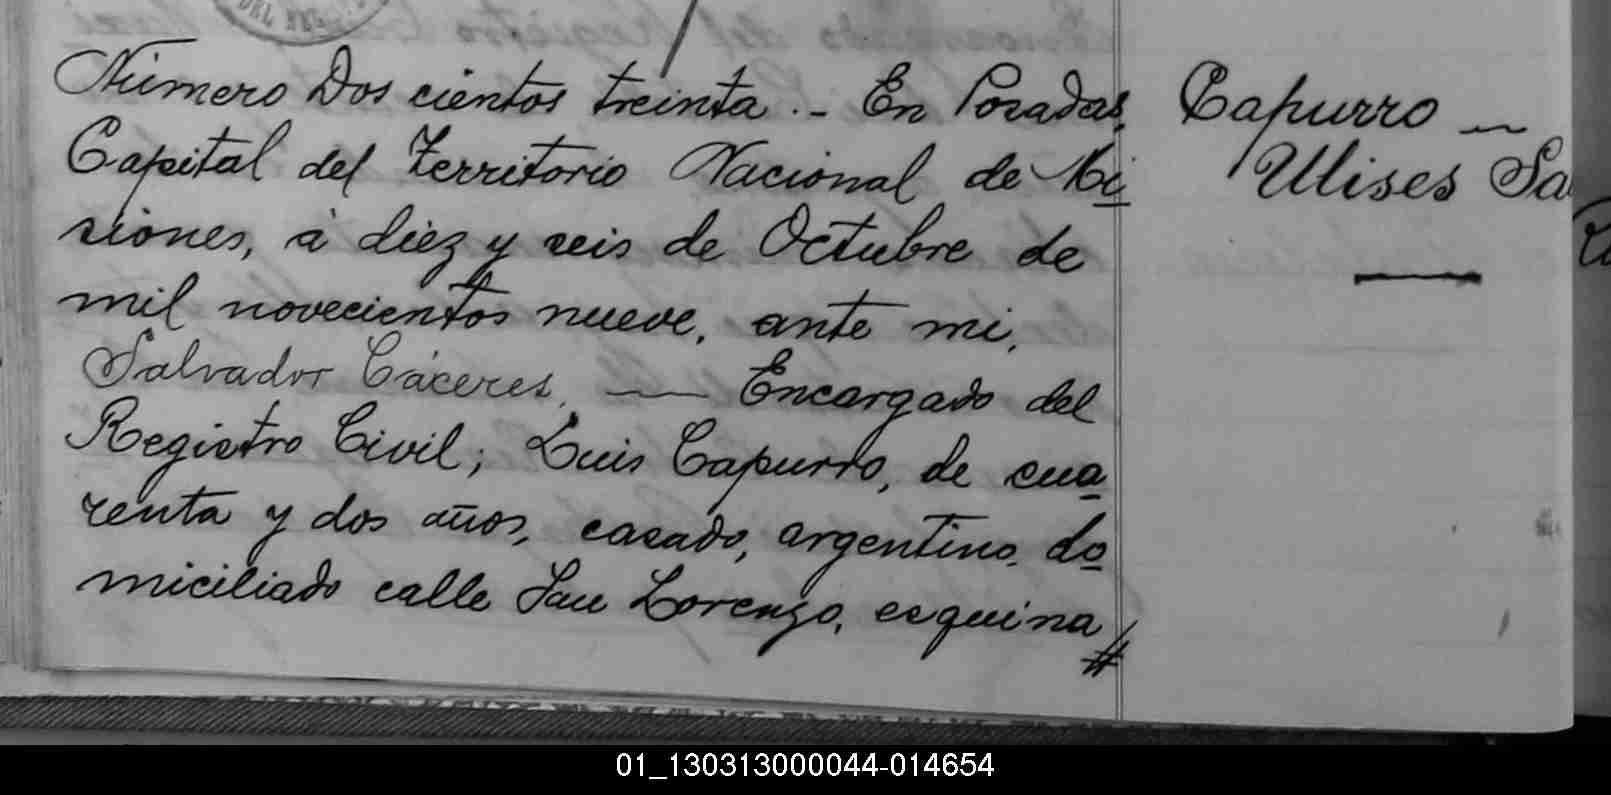 DEL
Número Dos cientos treinta.- En Posadas,
Capital del Territorio Nacional de Mi
siones, á diez y seis de Octubre de
mil novecientos nueve, ante mi,
Salvador Cáceres, — Encargado del
Registro Civil; Luis Capurro, de cua
renta y dos años, casado, argentino, do
miciliado calle San Lorenzo, esquina
#
Capurro —
Ulises Sa
01_130313000044-014654